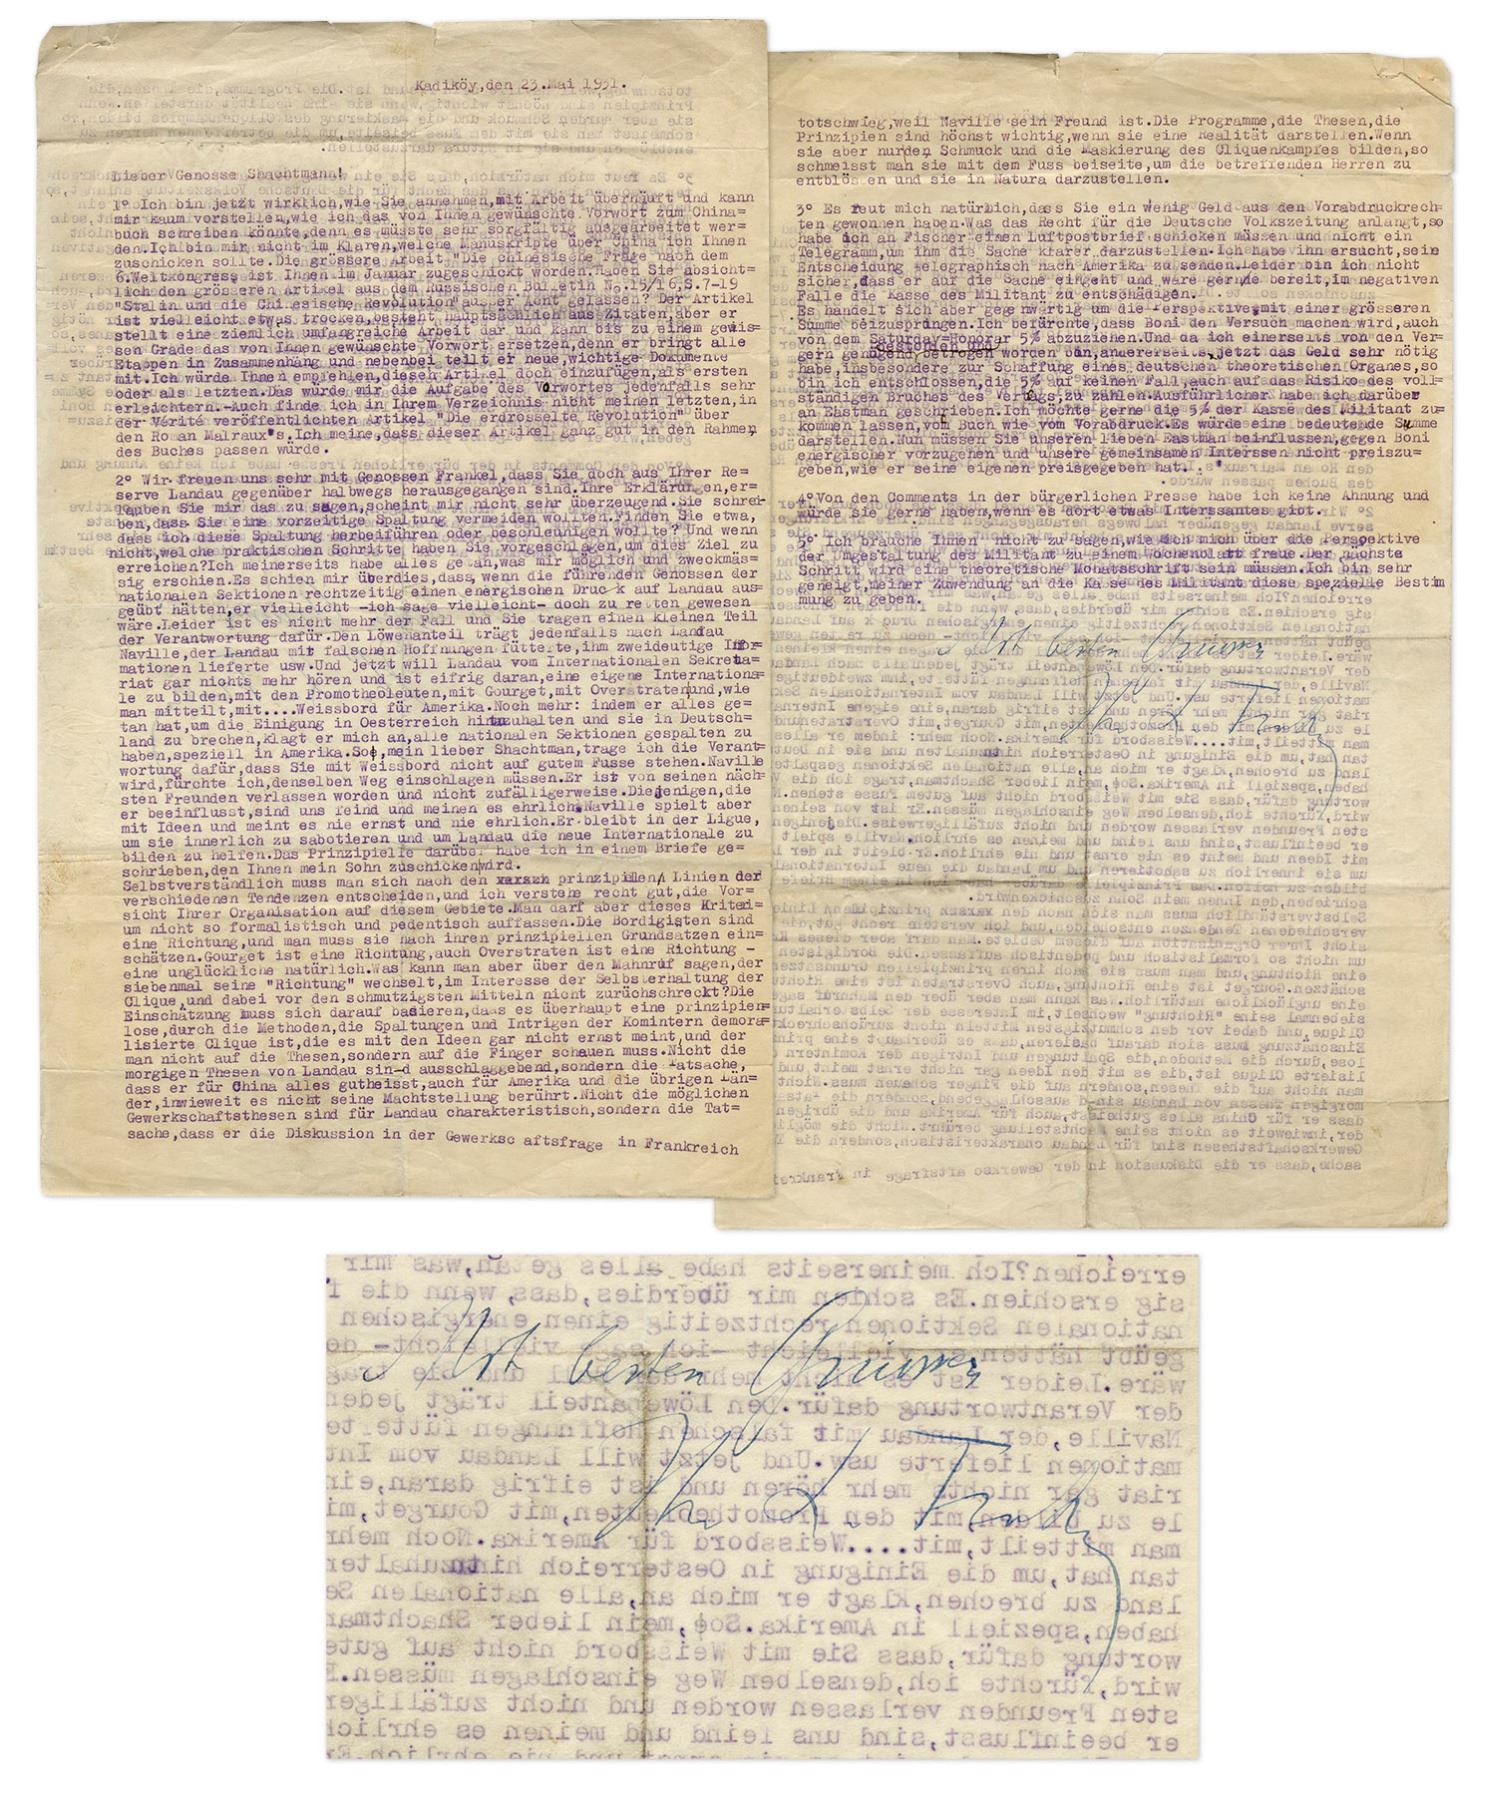 Kadiköy,den 23.Mai 1931.
Lieber Genosse Shachtman!
1° Ich bin jetzt wirklich,wie Sie annehmen,mit Arbeit überhäuft und kann
mir kaum vorstellen,wie ich das von Ihnen gewünschte Vorwort zum China=
buch schreiben könnte,denn es müsste sehr sorgfältig ausgearbeitet wer=
den.Ich bin mir nicht im Klaren,welche Manuskripte über China ich Ihnen
zuschicken sollte.Die grössere Arbeit "Die chinesische Frage nach dem
6.Weltkongress ist Ihnen im Januar zugeschickt worden.Haben Sie absicht=
lich den grösseren Artikel aus dem Russischen Bulletin No.15/16,S.7-19
"Stalin und die Chinesische Revolution"ausser Acht gelassen? Der Artikel
ist vielleicht etwas trocken,besteht hauptsächlich aus Zitaten,aber er
stellt eine ziemlich umfangreiche Arbeit dar und kann bis zu einem gewis=
sen Grade das von Ihnen gewünschte Vorwort ersetzen,denn er bringt alle
Etappen in Zusammenhang und nebenbei teilt er neue,wichtige Dokumente
mit.Ich würde Ihnen empfehlen,diesen Artikel doch einzufügen,als ersten
oder als letzten.Das würde mir die Aufgabe des Vorwortes jedenfalls sehr
erleichtern.-Auch finde ich in Ihrem Verzeichnis nicht meinen letzten,in
der Vérité veröffentlichten Artikel "Die erdrosselte Revolution" über
den Ro an Malraux's.Ich meine,dass dieser Artikel ganz gut in den Rahmen
des Buches passen würde.
2° Wir freuen uns sehr mit Genossen Frankel,dass Sie doch aus Ihrer Re=
serve Landau gegenüber halbwegs herausgegangen sind.Ihre Erklärungen,er=
lauben Sie mir das zu sagen,scheint mir nicht sehr überzeugend.Sie schrei-
ben,dass Sie eine vorzeitige Spaltung vermeiden wollten.Finden Sie etwa,
dass ich diese Spaltung herbeiführen oder beschleunigen wollte? Und wenn
nicht,welche praktischen Schritte haben Sie vorgeschlagen,um dies Ziel zu
erreichen?Ich meinerseits habe alles getan,was mir möglich und zweckmäs=
sig erschien.Es schien mir überdies,dass,wenn die führenden Genossen der
nationalen Sektionen rechtzeitig einen energischen Druc k auf Landau aus=
geübt hätten,er vielleicht -ich sage vielleicht- doch zu retten gewesen
wäre.Leider ist es nicht mehr der Fall und Sie tragen einen kleinen Teil
der Verantwortung dafür.Den Löwenanteil trägt jedenfalls nach Landau
Naville,der Landau mit falschen Hoffnungen fütterte,ihm zweideutige Infor=
mationen lieferte usw.Und jetzt will Landau vom Internationalen Sekreta=
riat gar nichts mehr hören und ist eifrig daran,eine eigene Internationa=
le zu bilden,mit den Promotheoleuten,mit Gourget,mit Overstraten und,wie
man mitteilt,mit....Weissbord für Amerika.Noch mehr: indem er alles ge=
tan hat,um die Einigung in Oesterreich hintnzuhalten und sie in Deutsch=
land zu brechen,klagt er mich an,alle nationalen Sektionen gespalten zu
haben,speziell in Amerika.So,mein lieber Shachtman,trage ich die Verant=
wortung dafür,dass Sie mit Weissbord nicht auf gutem Fusse stehen.Naville
wird,fürchte ich,denselben Weg einschlagen müssen.Er ist von seinen näch=
sten Freunden verlassen worden und nicht zufälligerweise.Diejenigen,die
er beeinflusst,sind uns feind und meinen es ehrlich.Naville spielt aber
mit Ideen und meint es nie ernst und nie ehrlich.Er bleibt in der Ligue,
um sie innerlich zu sabotieren und um Landau die neue Internationale zu
bilden zu helfen.Das Prinzipielle darüber habe ich in einem Briefe ge=
schrieben,den Ihnen mein Sohn zuschicken wird.
Selbstverständlich muss man sich nach den prinzipiellen Linien der
verschiedenen Tendenzen entscheiden,und ich verstehe recht gut,die Vor=
sicht Ihrer Organisation auf diesem Gebiete.Man darf aber dieses Kriteri=
um nicht so formalistisch und pedentisch auffassen.Die Bordigisten sind
eine Richtung,und man muss sie nach ihren prinzipiellen Grundsätzen ein=
schätzen.Gourget ist eine Richtung,auch Overstraten ist eine Richtung -
eine unglückliche natürlich.Was kann man aber über den Mahnruf sagen,der
siebenmal seine "Richtung" wechselt,im Interesse der Selbsterhaltung der
Clique,und dabei vor den schmutzigsten Mitteln nicht zurückschreckt?Die
Einschätzung muss sich darauf basieren,dass es überhaupt eine prinzipien=
lose,durch die Methoden,die Spaltungen und Intrigen der Komintern demora=
lisierte Clique ist,die es mit den Ideen gar nicht ernst meint,und der
man nicht auf die Thesen,sondern auf die Finger schauen muss.Nicht die
morgigen Thesen von Landau sin-d ausschlaggebend,sondern die Tatsache,
dass er für China alles gutheisst,auch für Amerika und die übrigen Län=
der,inwieweit es nicht seine Machtstellung berührt.Nicht die möglichen
Gewerkschaftsthesen sind für Landau charakteristisch,sondern die Tat=
sache,dass er die Diskussion in der Gewerksc aftsfrage in Frankreich
totschwieg,weil Naville sein Freund ist.Die Programme,die Thesen,die
Prinzipien sind höchst wichtig,wenn sie eine Realität darstellen.Wenn
sie aber nurden Schmuck und die Maskierung des Cliquenkampfes bilden,so
schmeisst man sie mit dem Fuss beiseite,um die betreffenden Herren zu
entblös en und sie in Natura darzustellen.
3° Es reut mich natürlich,dass Sie ein wenig Geld aus den Vorabdruckrech=
ten gewonnen haben.Was das Recht für die Deutsche Volkszeitung anlangt,so
habe ich an Fischer einen Luftpostbrief schicken müssen und nicht ein
Telegramm,um ihm die Sache klarer darzustellen.Ich habe ihn ersucht,sein
Entscheidung telegraphisch nach Amerika zu senden.Leider bin ich nicht
sicher,dass er auf die Sache eingeht und wäre gerne bereit,im negativen
Falle die Kasse des Militant zu entschädigen.
Es handelt sich aber gegenwärtig um die Perspektive,mit einer grösseren
Summe beizuspringen.Ich befürchte,dass Boni den Versuch machen wird,auch
von dem Saturday=Honorar 5% abzuziehen.Und da ich einerseits von den Ver=
bestohlen und
gern genügend betrogen worden bin,andererseits,jetzt das Geld sehr nötig
habe,insbesondere zur Schaffung eines deutschen theoretischen Organes,so
bin ich entschlossen,die 5% auf keinen Fall,auch auf das Risiko des voll=
ständigen Bruches des Vertags,zu zahlen.Ausführlicher habe ich darüber
an Eastman geschrieben.Ich möchte gerne die 5% der Kasse des Militant zu=
kommen lassen,vom Buch wie vom Vorabdruck.Es würde eine bedeutende Summe
darstellen.Nun müssen Sie unseren lieben Eastman beinflussen,gegen Boni
energischer vorzugehen und unsere gemeinsamen Interssen nicht preiszu=
geben,wie er seine eigenen preisgegeben hat.
4°Von den Comments in der bürgerlichen Presse habe ich keine Ahnung und
würde sie gerne haben,wenn es dort etwas Interssantes gibt.
5° Ich brauche Ihnen nicht zu sagen,wie ich mich über die Perspektive
der Umgestaltung des Militant zu einem Wochenblatt freue.Der nächste
Schritt wird eine theoretische Monatsschrift sein müssen.Ich bin sehr
geneigt,meiner Zuwendung an die Kasse des Militant diese spezielle Bestim
mung zu geben.
Mit besten Grüssen